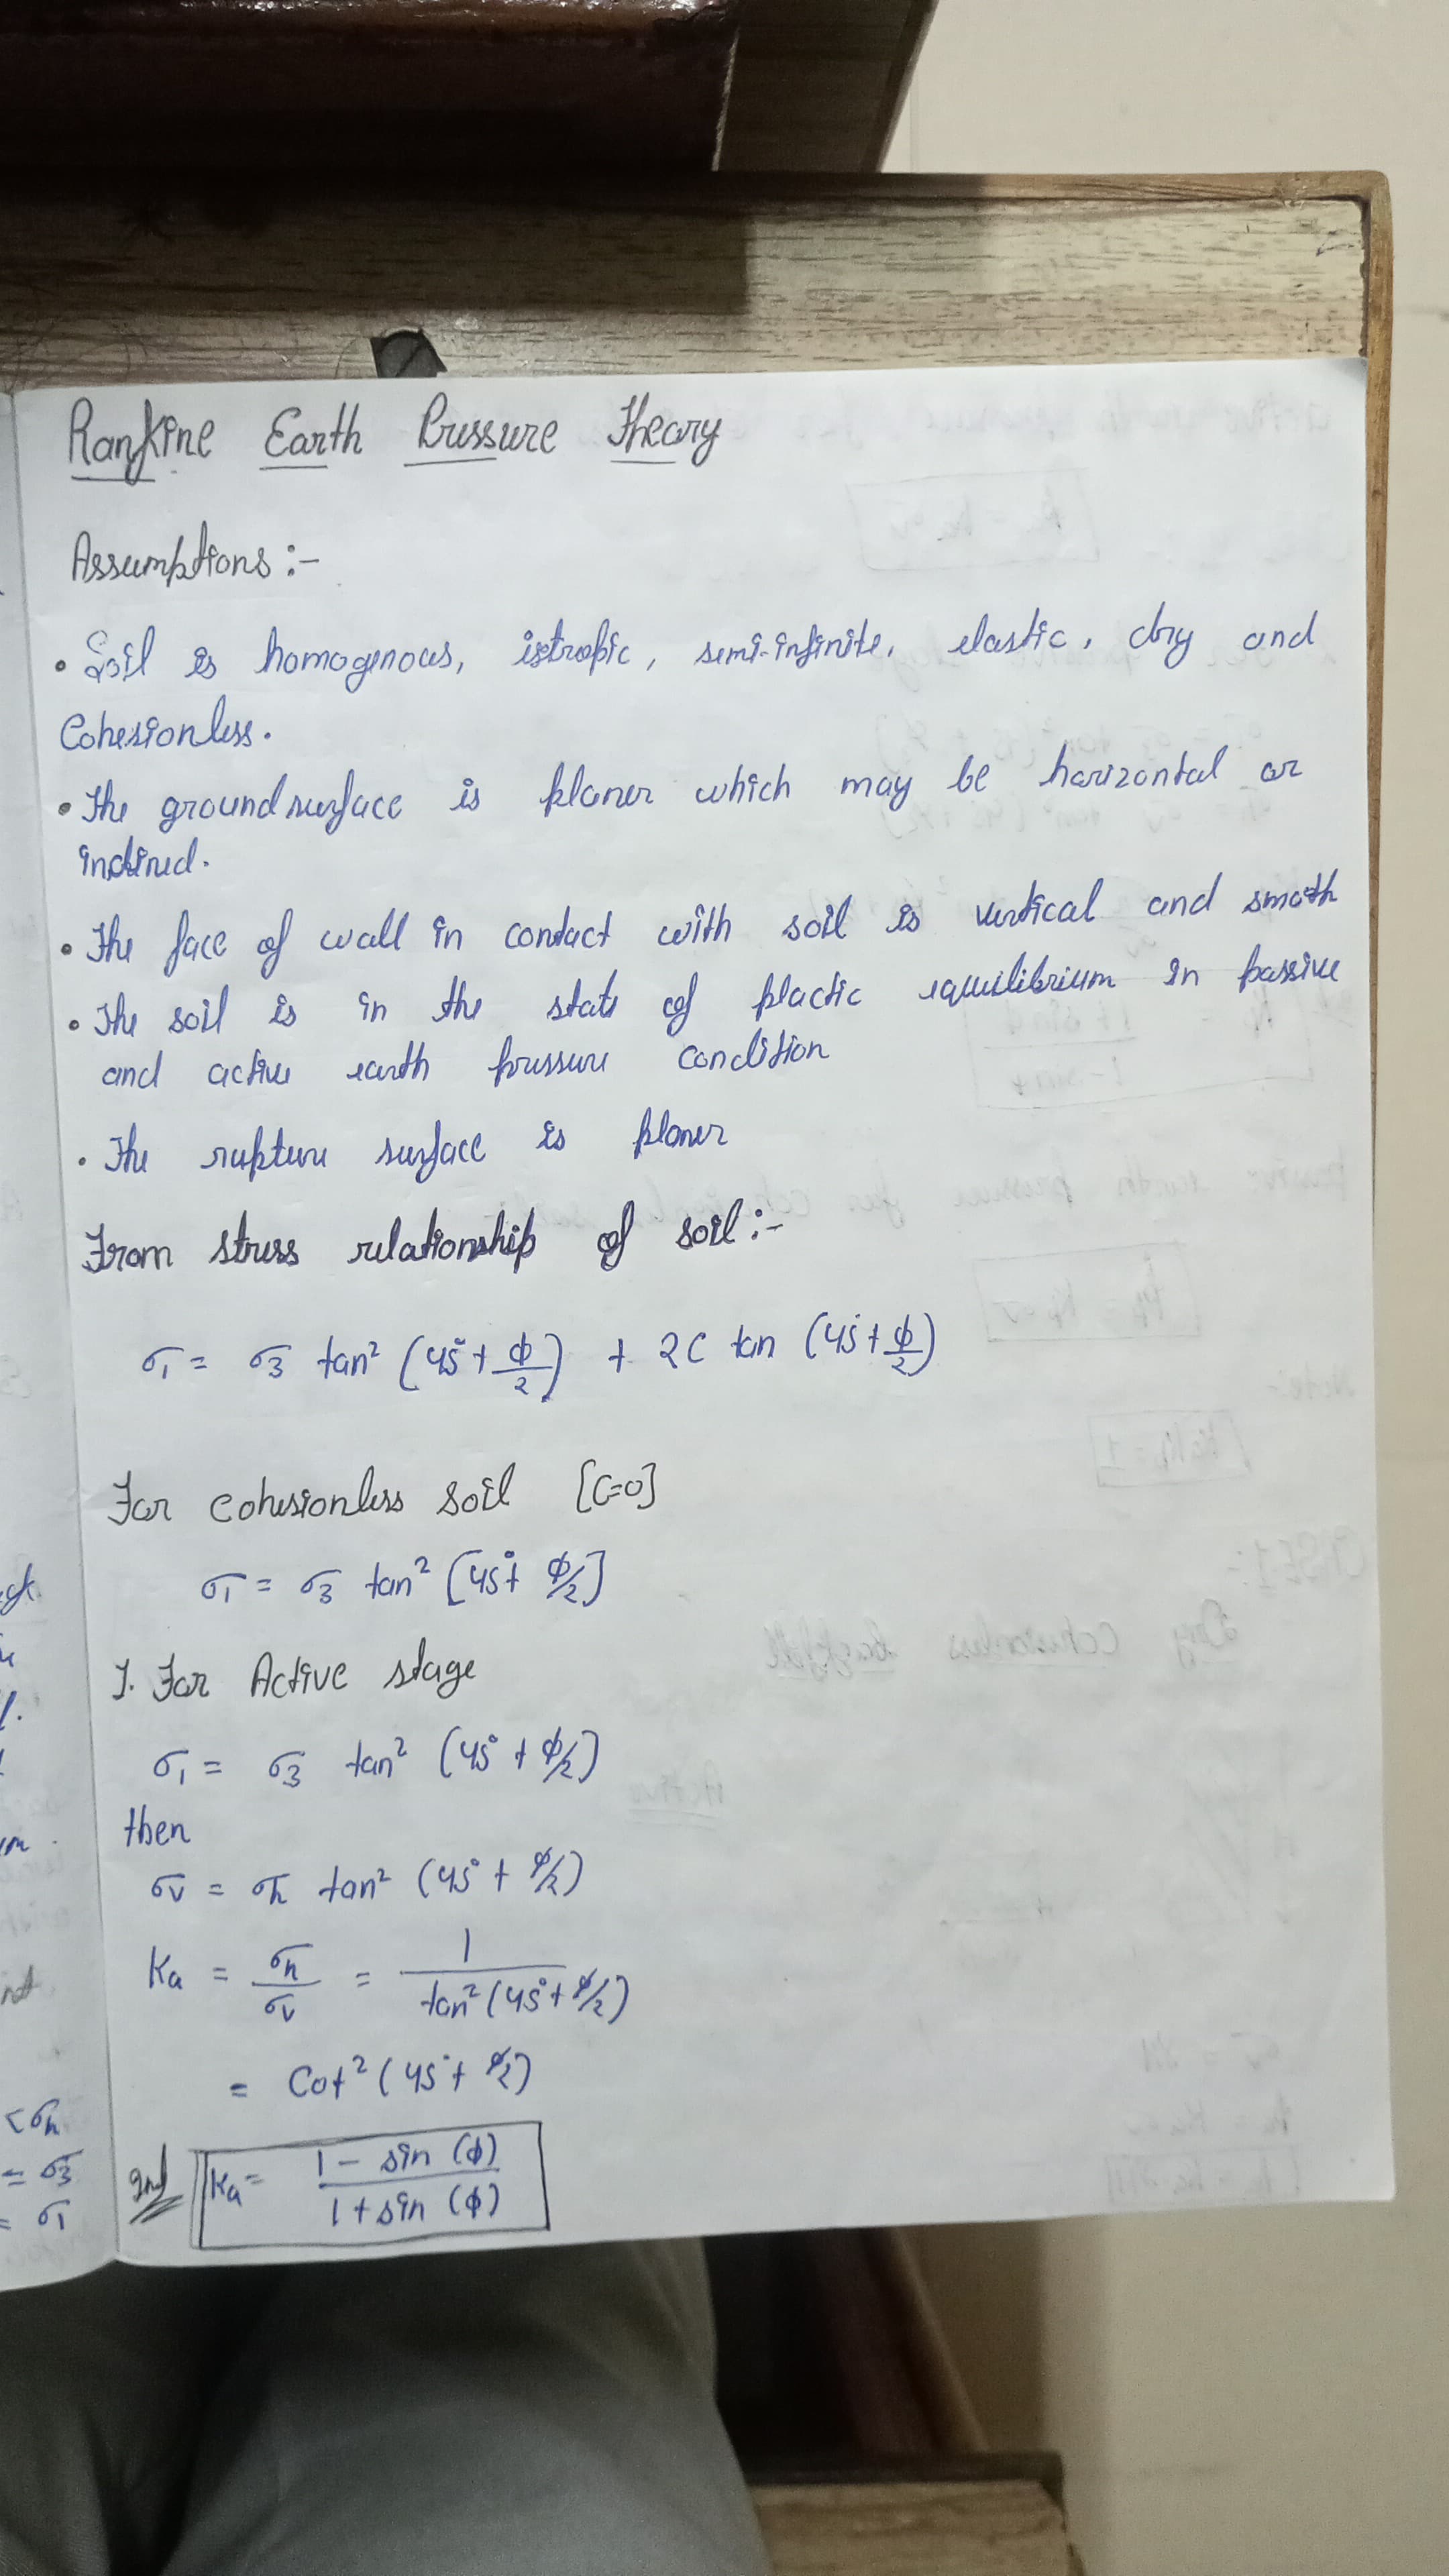 Rankine Earth Pressure Theory
Assumptions :-
• Soil is homogenous, istropic, semi-infinite, elastic, dry and
Cohesionless.
• The ground surface is planer which may be horizontal or
inclined.
• The face of wall in contact with soil is vertical and smooth
• The soil is in the state of plactic equilibrium in passive
and active earth pressure condition
• The rupture surface is planer
From stress relationship of soil :-
σ1 = σ3 tan² (45° + ϕ/2) + 2C tan (45° + ϕ/2)
For cohesionless soil [C=0]
σ1 = σ3 tan² [45° + ϕ/2]
I. For Active stage
σ1 = σ3 tan² (45° + ϕ/2)
then
σv = σh tan² (45° + ϕ/2)
Ka = σh/σv = 1/tan² (45° + ϕ/2)
= Cot² (45° + ϕ/2)
Ka = 1 - sin (ϕ)/1 + sin (ϕ)
< σh
= σ3
= σ1